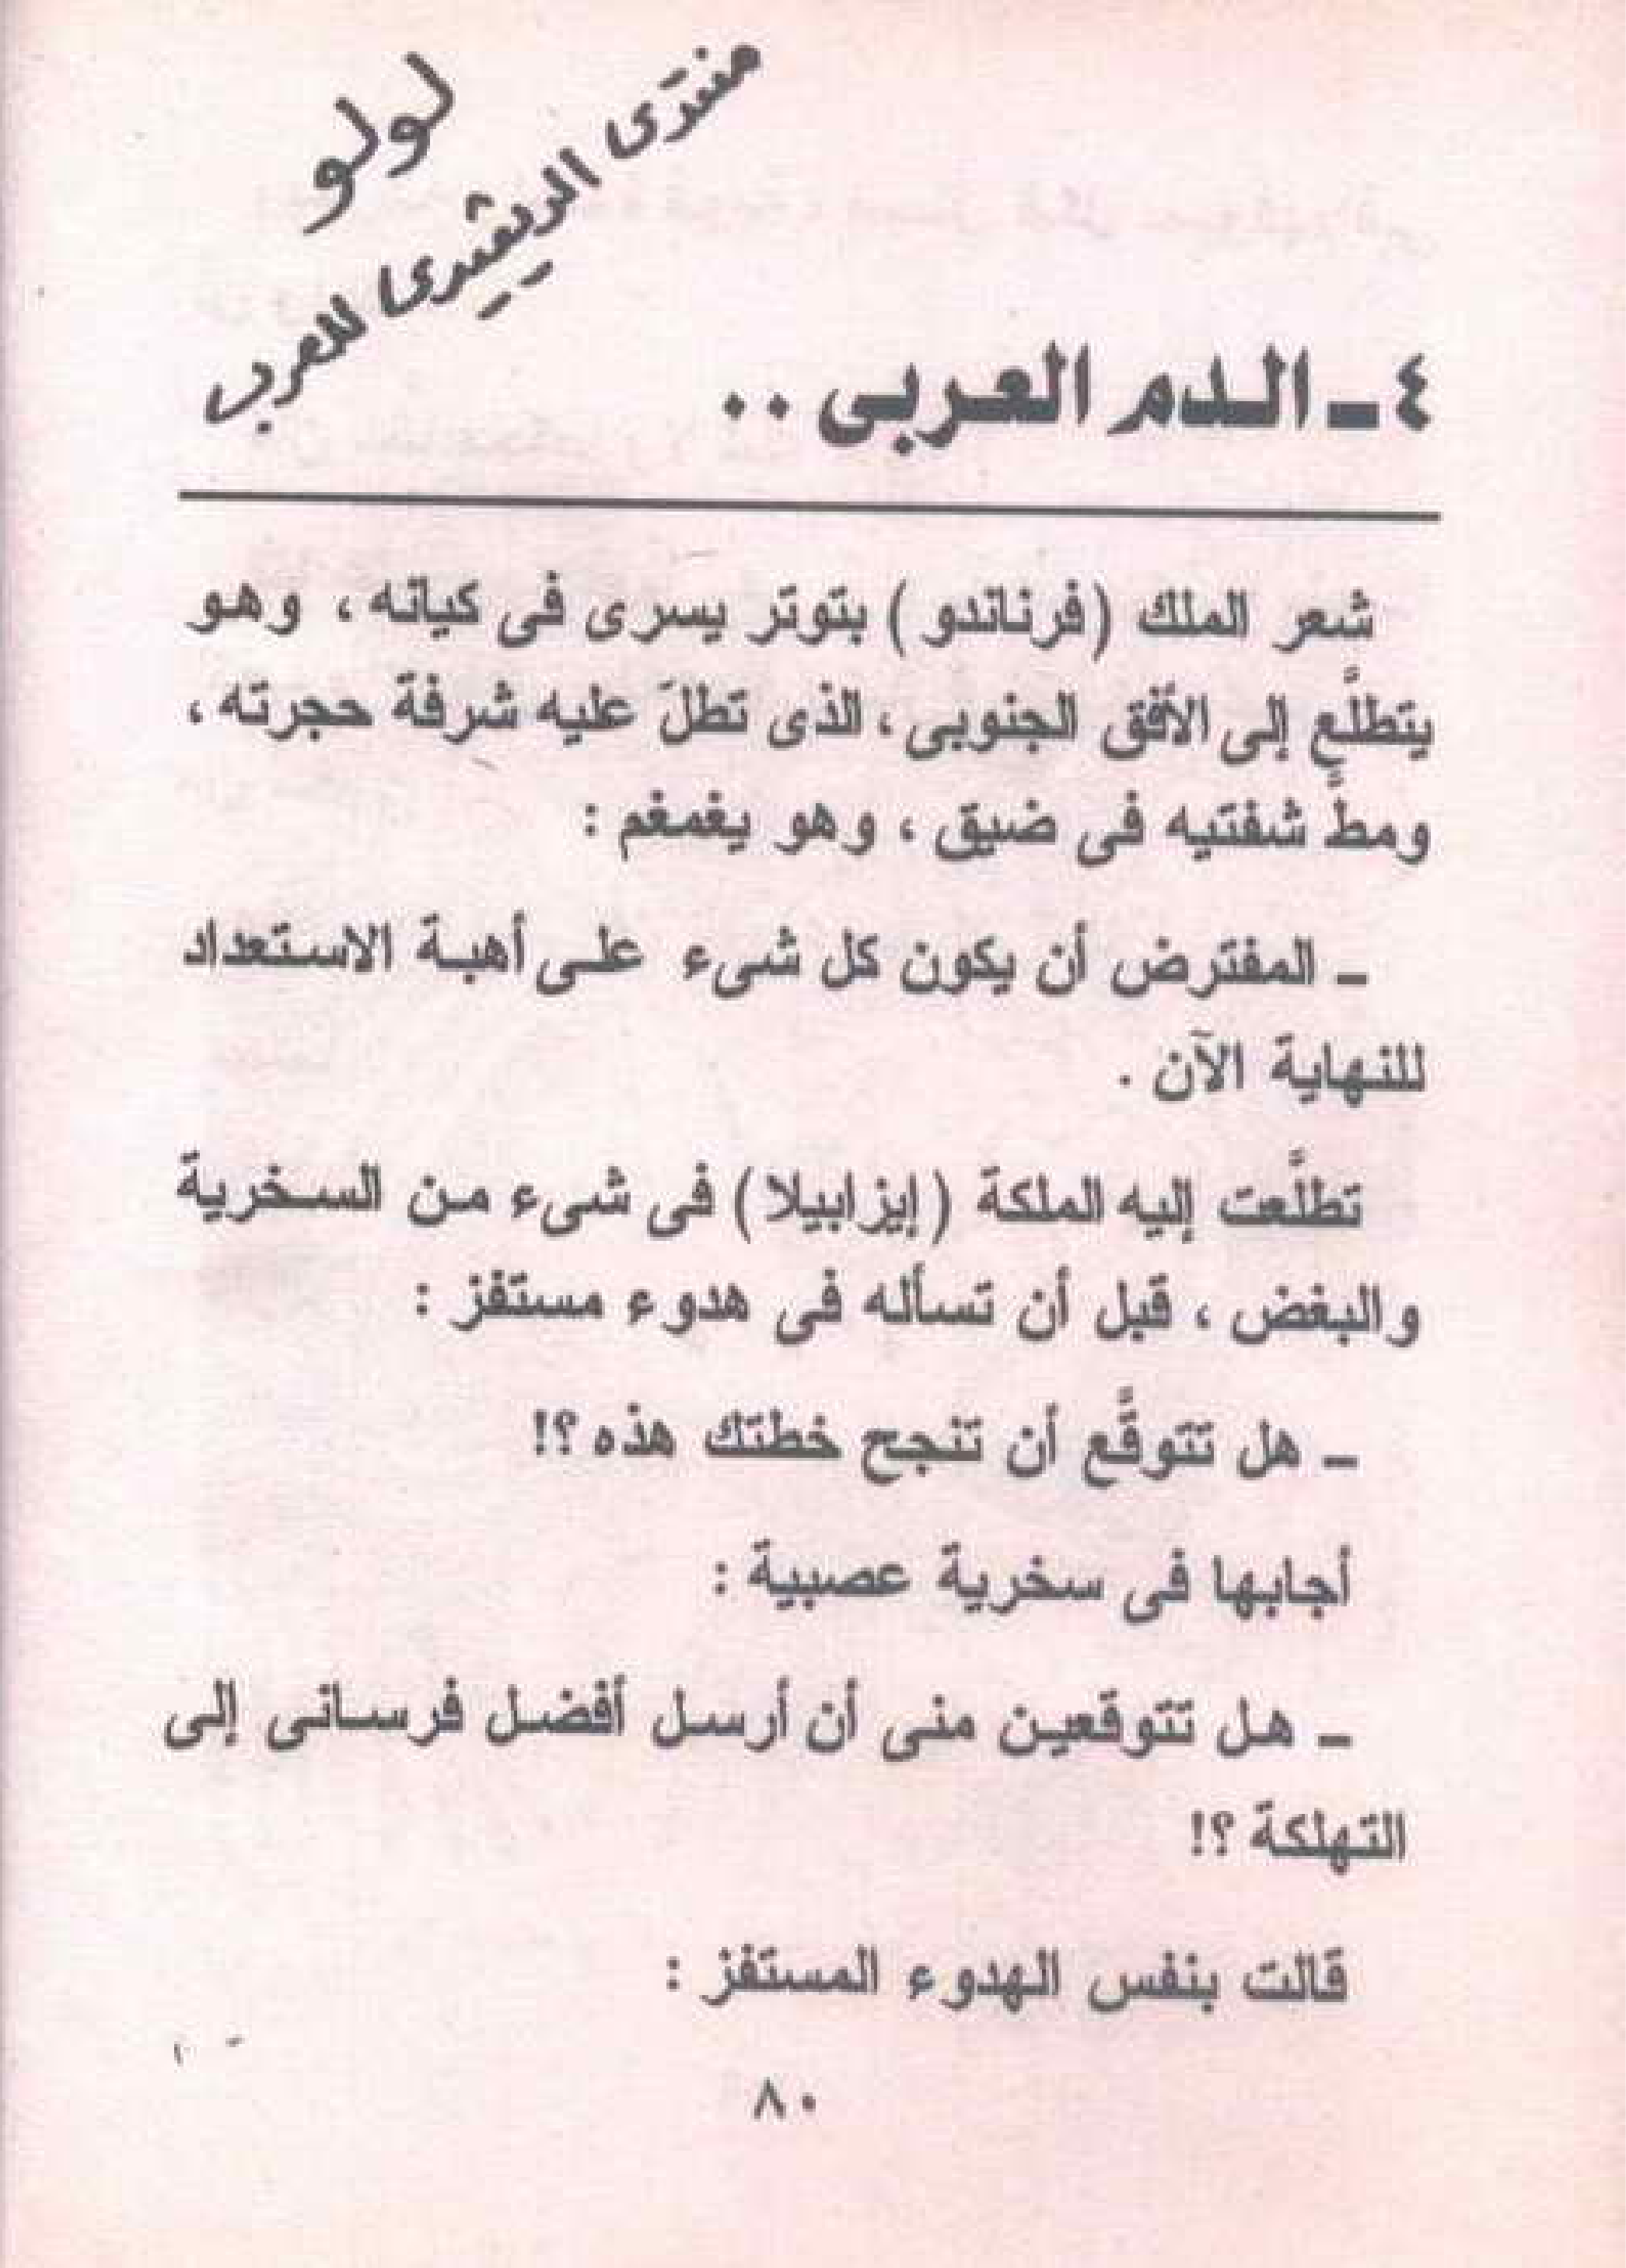 لولو
منتدى الريشيدى للعرب
٤ ـ الـدم العـربى ..
شعر الملك (فرناندو) بتوتر يسرى فى كيانه ، وهـو
يتطلَّع إلى الأفق الجنوبى ، الذى تطلَ عليه شرفة حجرته ،
ومطَّ شفتيه فى ضيق ، وهو يغمغم :
ـ المفترض أن يكون كل شىء علـى أهبـة الاسـتعداد
للنهاية الآن .
تطلَّعت إليه الملكة (إيزابيلا) فى شىء مـن السـخرية
والبغض ، قبل أن تسأله فى هدوء مستفز :
ـ هل تتوقَّع أن تنجح خطتك هذه ؟!
أجابها فى سخرية عصبية :
ـ هـل تتوقعيـن منى أن أرسـل أفضـل فرسـانى إلى
التهلكة ؟!
قالت بنفس الهدوء المستفز :
٨٠